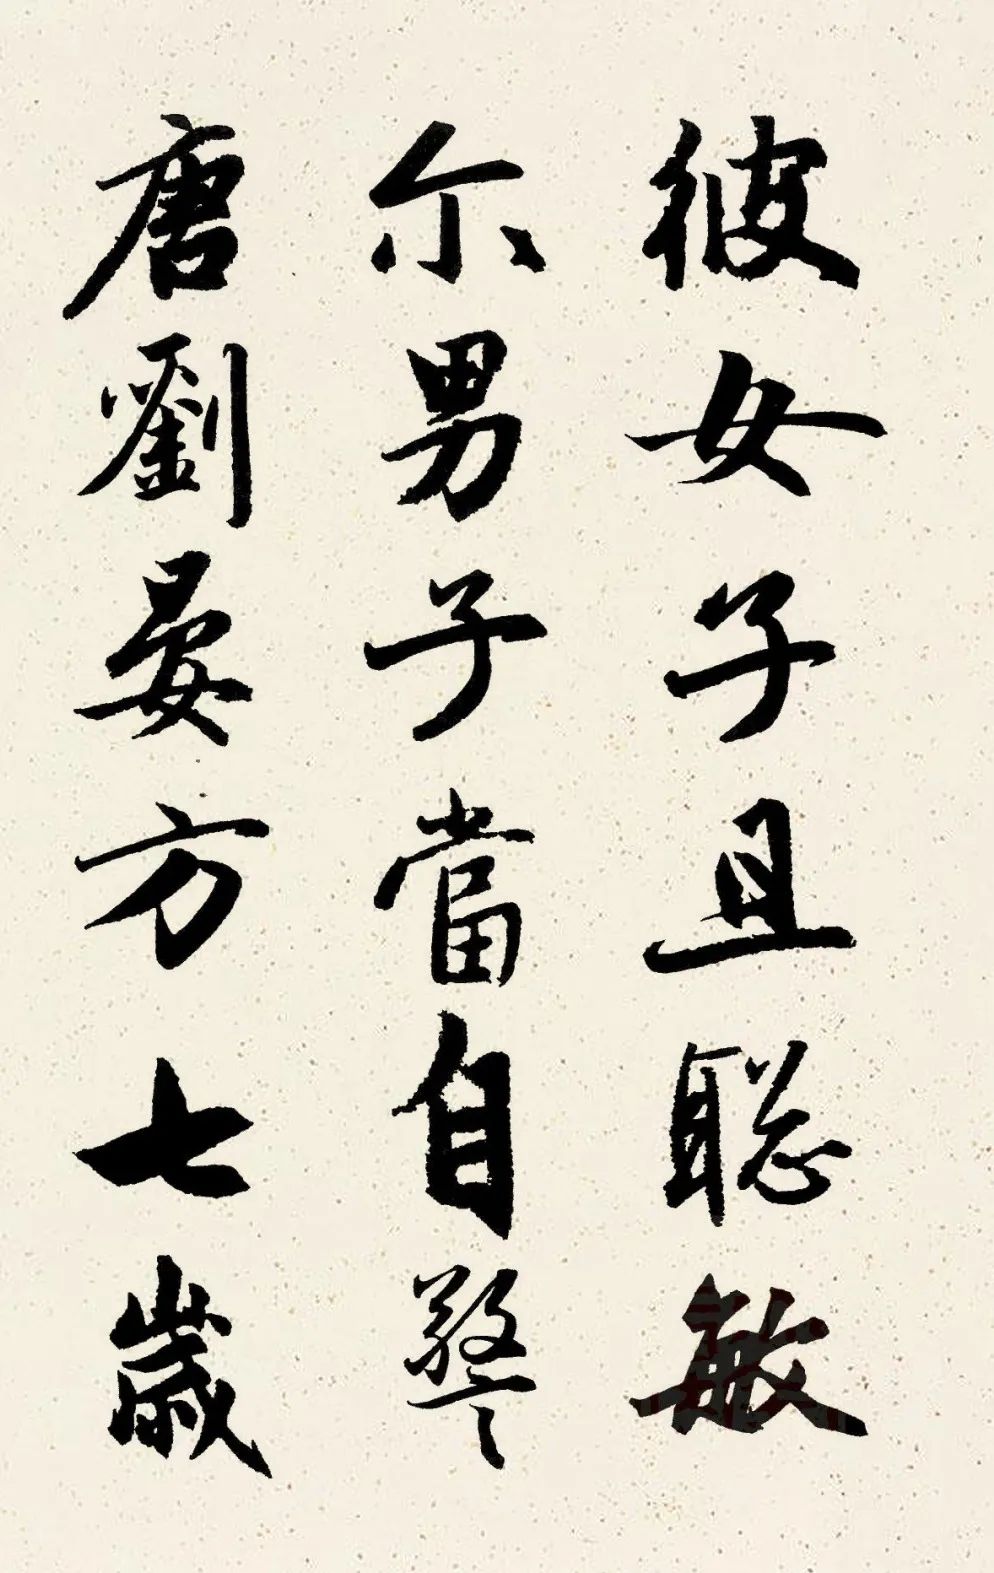 彼女子且聪敏
尓男子當自警
唐劉晏方七歲